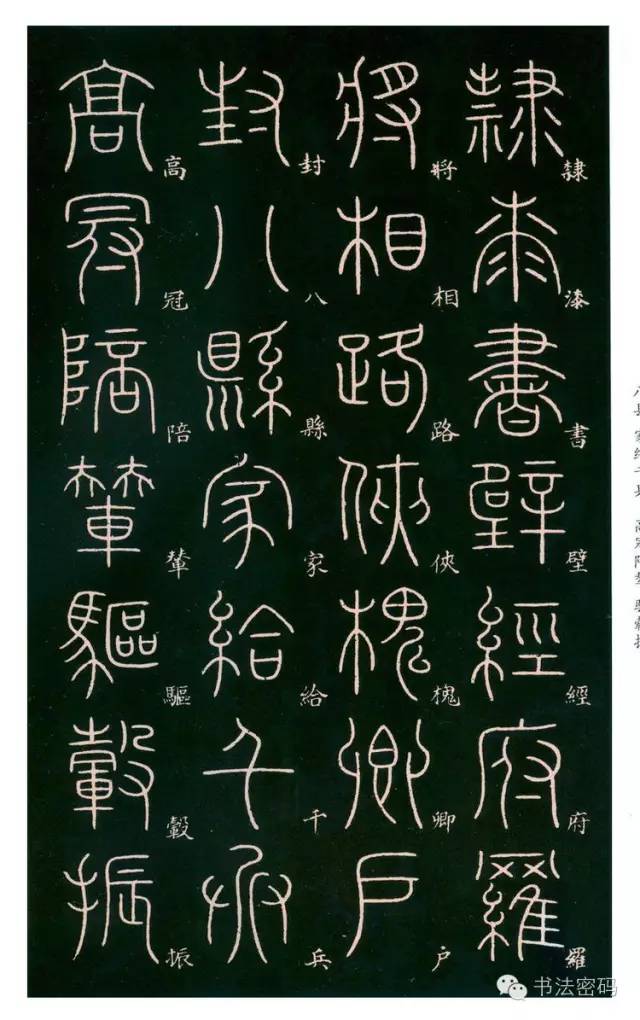 隸漆書壁經府羅
將相路俠槐卿户
封八縣家給千兵
高冠陪輦驅轂振
书法密码